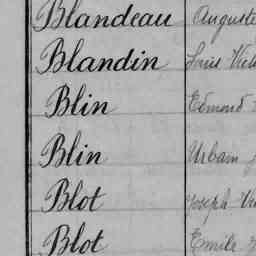 Blandeau Auguste
Blandin Louis
Blin Edmond
Blin Urbain
Blot Joseph
Blot Emile